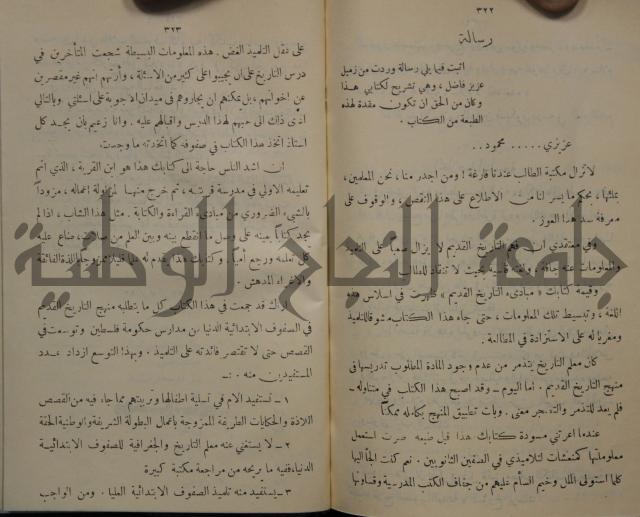 ٣٢٢
رسالة
اثبت فيما يلي رسالة وردت من زميل
عزيز فاضل، وهي تشريح لكتابي هذا
وكان من الحق ان تكون مقدمة لهذه
الطبعة من الكتاب.
عزيزي ..... محمود ..
لا تزال مكتبة الطالب عندنا فارغة! ومن اجدر منا، نحن المعلمين،
بملئها، بحكم ما يسر لنا من الاطلاع على هذا النقص، والوقوف على
معرفة هذا العوز.
وفي معتقدي ان التاريخ القديم لا يزال صعباً على
والمعلومات عنه جافة، ولغته قاسية بحيث لا تنقاد للطالب
وقيمة كتابك « مبادىء التاريخ القديم » ظهرت في اسلاس هذه
اللغة، وتبسيط تلك المعلومات، حتى جاء هذا الكتاب مشوقاً للتلميذ
ومغرياً له على الاستزادة في المطالعة.
كان معلم التاريخ يتذمر من عدم وجود المادة المطلوب تدريسها في
منهج التاريخ القديم. اما اليوم ـ وقد اصبح هذا الكتاب في متناوله ـ
فلم يعد للتذمر والتضجر معنى. وبات تطبيق المنهج بكامله ممكناً
عندما اعرتني مسودة كتابك هذا قبل طبعه صرت استعمل
معلوماتها كمنعشات لتلاميذي في الصفين الثانويين. نعم كنت الجأ اليها
كلما استولى الملل وخيم السأم عليهم من جفاف الكتب المدرسية وقساوتها
٣٢٣
على عقل التلميذ الغض. هذه المعلومات البسيطة شجعت المتأخرين في
درس التاريخ على ان يجيبوا على كثير من الاسئلة، وأرتهم انهم غير مقصرين
عن اخوانهم، بل يمكنهم ان يجاروهم في ميدان الاجوبة على اسئلتي. وبالتالي
ادى ذلك الى حبهم لهذا الدرس واقبالهم عليه. وانا زعيم بأن يجد كل
استاذ اتخذ هذا الكتاب في صفوفه كما اتخذته ما وجدت.
ان اشد الناس حاجة الى كتابك هذا هو ابن القرية، الذي اتم
تعليمه الاولي في مدرسة قريته، ثم خرج منها لمزاولة اعماله، مزوداً
بالشيء الضروري من مبادىء القراءة والكتابة. مثل هذا الشاب، اذا لم
يجد كتاباً يعينه على وصل ما انقطع بينه وبين العلم من صلات، ضاع عليه
كل تعلمه ورجع أمياً. وكتابك هذا يقدم له علماً قليلاً ممزوجاً باللذة الفائقة
والاغراء المدهش.
اراك قد جمعت في هذا الكتاب كل ما يتطلبه منهج التاريخ القديم
في الصفوف الابتدائية الدنيا من مدارس حكومة فلسطين وتوسعت في
القصص حتى لا تقتصر فائدته على التلميذ. وبهذا التوسع ازداد عدد
المستفيدين منه. :ـ
١ ـ تستفيد الام في تسلية اطفالها وتربيتهم مما جاء فيه من القصص
اللاذة والحكايات الطريفة الممزوجة باعمال البطولة الشريفة والوطنية الحقة
٢ ـ لا يستغني عنه معلم التاريخ والجغرافية للصفوف الابتدائية
الدنيا، ففيه ما يريحه من مراجعة مكتبة كبيرة
٣ ـ يستفيد منه تلميذ الصفوف الابتدائية العليا. ومن الواجب
جامعة النجاح الوطنية